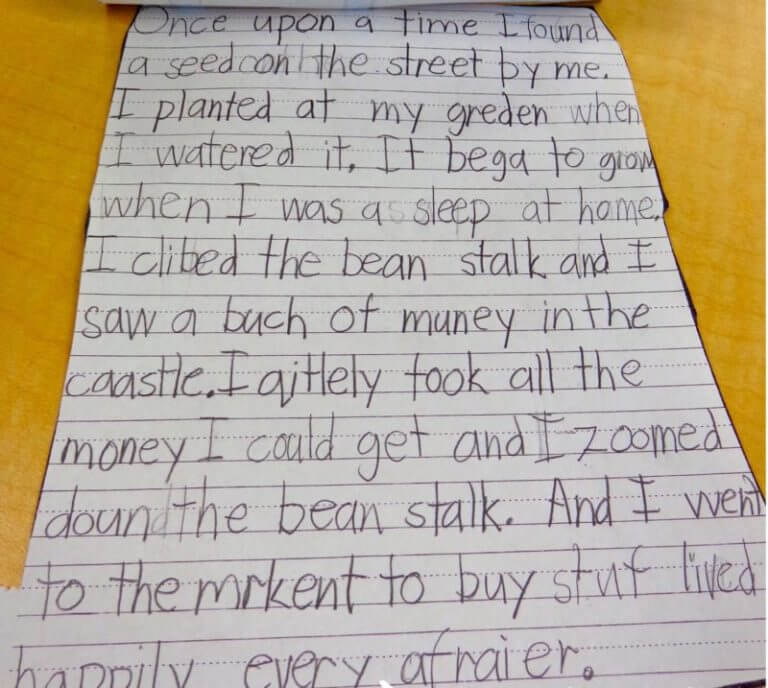 Once upon a time I found
a seed on the street by me.
I planted at my greden when
I watered it. It bega to grow
when I was a sleep at home.
I clibed the bean stalk and I
saw a buch of muney in the
caastle. I qitlely took all the
money I could get and I zoomed
doun the bean stalk. And I went
to the mrkent to buy stuf lived
happily every